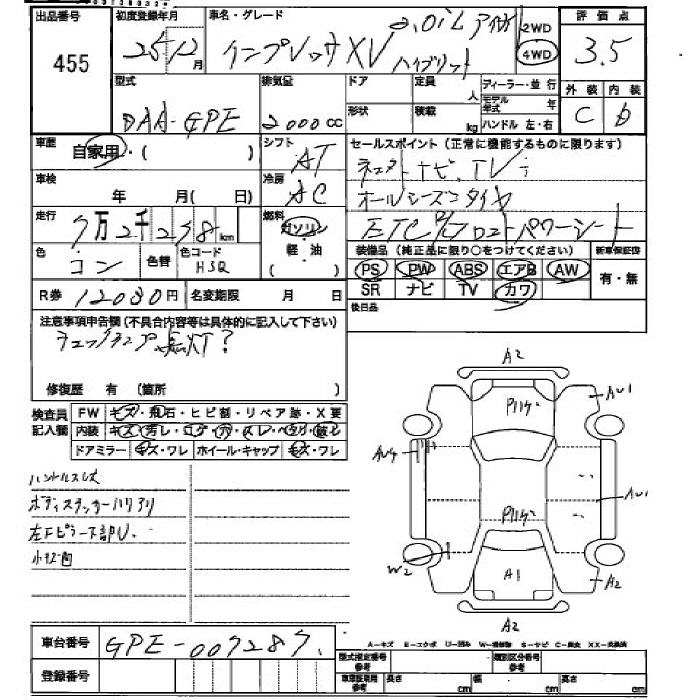 出品番号
455
初度登録年月
25/12月
車名・グレード
インプレッサXV ハイブリッド
2.0iL アイサイト
2WD
4WD
評価点
3.5
外装 内装
C D
型式
DAA-GPE
排気量
2000cc
ドア
形状
定員
人
積載
kg
ディーラー・並行
モデル年式 年
ハンドル 左・右
車歴
自家用・( )
シフト
AT
セールスポイント(正常に機能するものに限ります)
車検
年 月( 日)
冷房
AC
ナビ、TV
オールシーズンタイヤ
走行
7万2千238km
燃料
ガソリン
軽・油
( )
ETC パワーシート
色
コン
色替
色コード
H3Q
装備品(純正品に限り○をつけてください)
新車保証書
PS PW ABS エアB AW
SR ナビ TV カワ
有・無
R券 12080円
名変期限 月 日
後日品
注意事項申告欄(不具合内容等は具体的に記入して下さい)
チェックランプ点灯?
修復歴 有 (箇所 )
検査員記入欄
FW キズ・飛石・ヒビ割・リペア跡・X要
内装 キズ・汚レ・コゲ・穴・スレ・ベタリ・破レ
ドアミラー キズ・ワレ ホイール・キャップ キズ・ワレ
ハンドルスレ
ボディステッカーハリアリ
左Fピラー下部U
小キズ凹
A2
A41
A44
A41
W2
A1
A2
A2
車台番号
GPE-007287
登録番号
A-キズ E-エクボ U-凹み W-補修跡 S-サビ C-腐食 XX-交換済
型式指定番号 参考
類別区分番号 参考
車庫証明用 参考
長さ cm
幅 cm
高さ cm